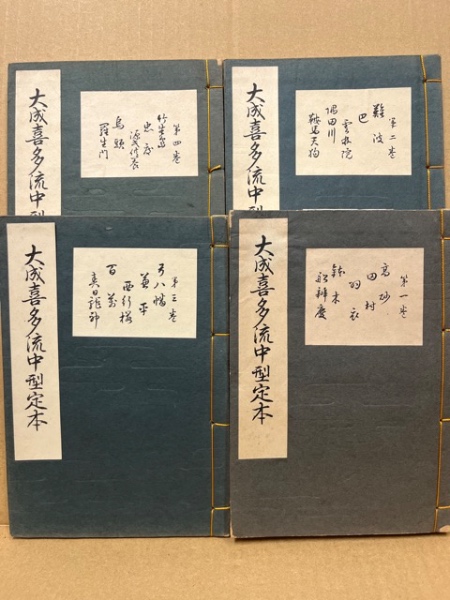 大成喜多流中型
第四巻
竹生島
忠度
源氏供養
烏頭
羅生門
大成喜多流中型
第二巻
難波
巴
雲林院
隅田川
鞍馬天狗
大成喜多流中型定本
第三巻
弓八幡
兼平
西行桜
百萬
春日龍神
大成喜多流中型定本
第一巻
高砂
田村
羽衣
鉢木
船辨慶